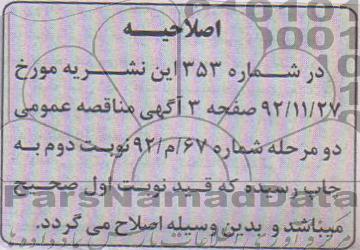 اصلاحیه
در شماره ۳۵۳ این نشریه مورخ
۹۲/۱۱/۲۷ صفحه ۳ آگهی مناقصه عمومی
دو مرحله شماره ۶۷/م/۹۲ نوبت دوم به
چاپ رسیده که قید نوبت اول صحیح
میباشد و بدین وسیله اصلاح می گردد.
ParsNamadData